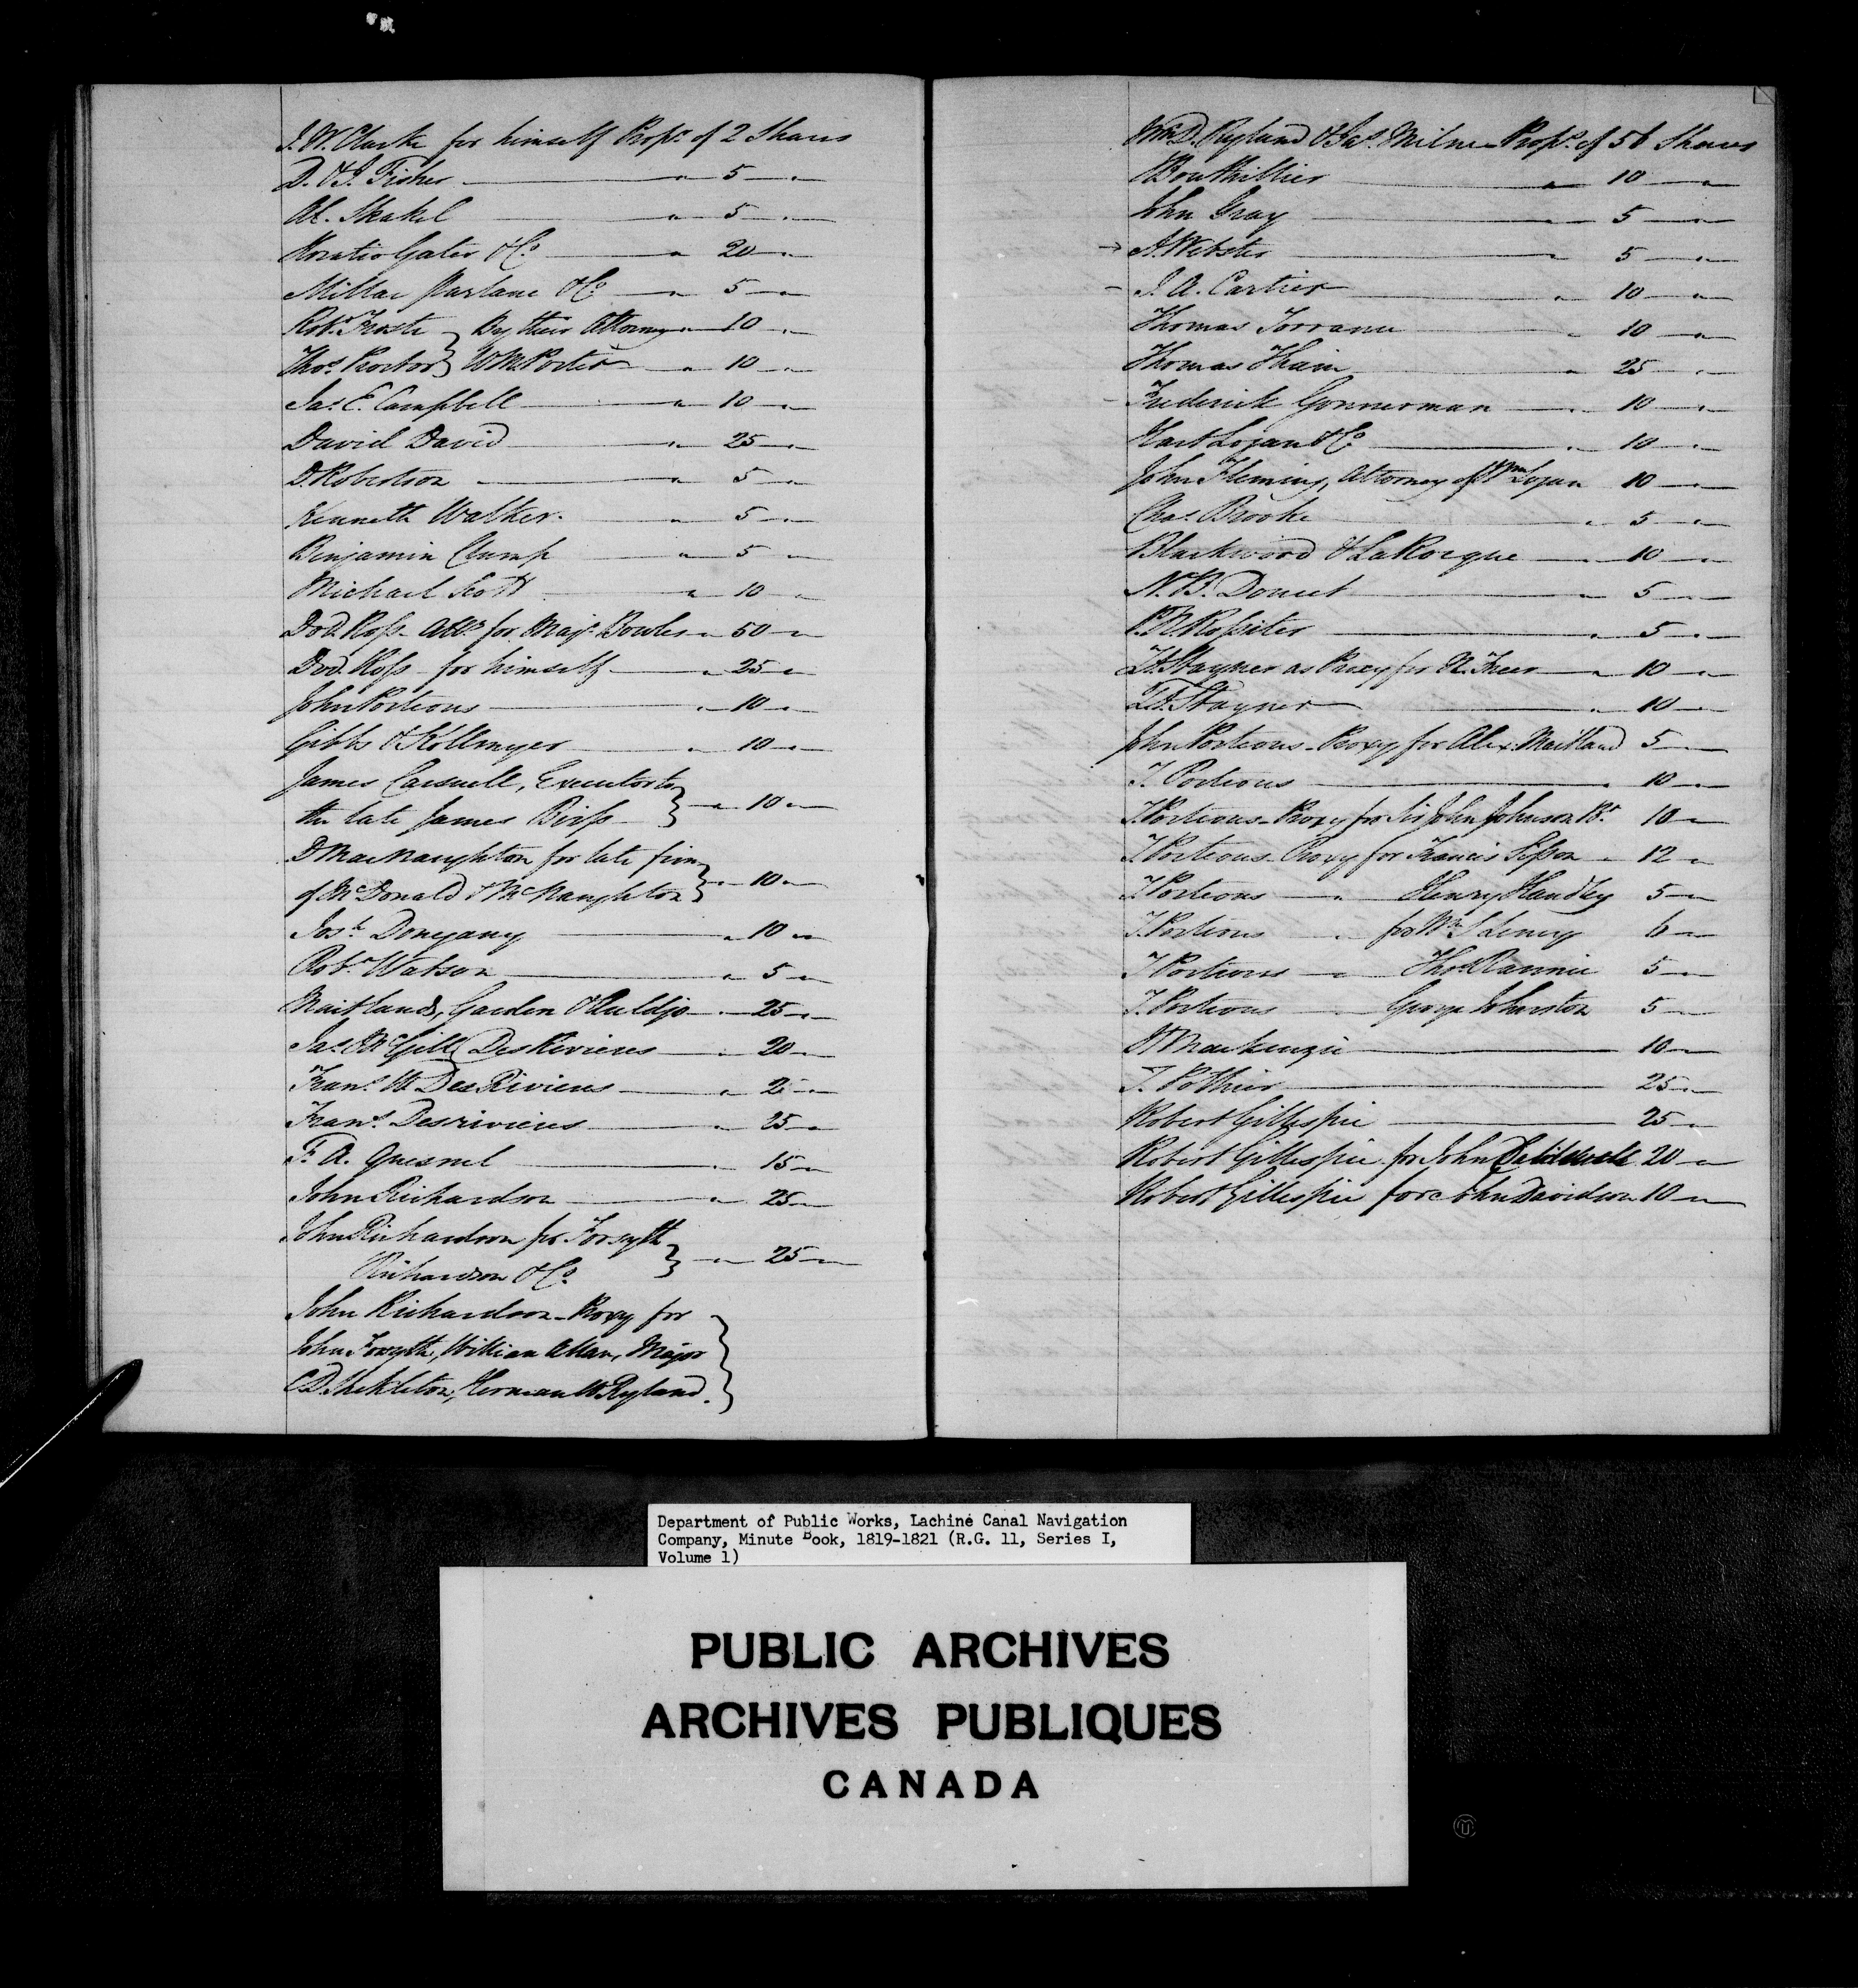 J. W. Clarke for himself Propr. of 2 Shares
D. & J. Fisher — " — 5 — "
Al. Skakel — " — 5 — "
Horatio Gates & Co. — " — 20 — "
Millar Parlane & Co — " — 5 — "
Robt. Froste } By their Attorney " — 10 — "
Thos. Proctor } W M Porter — " — 10 — "
Jas. E. Campbell — " — 10 — "
David David — " — 25 — "
D. Robertson — " — 5 — "
Kenneth Walker. — " — 5 — "
Benjamin Clump — " — 5 — "
Michael Scott — " — 10 — "
Dvd. Ross Atty. for Majr. Bowles " — 50 — "
Dvd. Ross for himself — " — 25 — "
John Porteous — " — 10 — "
Gibbs & Kollmyer — " — 10 — "
James Carsuell, Executor to
the late James Birss } — " — 10 — "
D MacNaughton for late firm
of McDonald & McNaughton } — " — 10 — "
Josh. Donegany — " — 10 — "
Robt. Watson — " — 5 — "
Maitland, Garden & Auldjo — " — 25 — "
Jas. McGill DesRivieres — " — 20 — "
Frans. DesRivieres — " — 2 — "
Frans. Desrivieres — " — 25 — "
F. A. Quesnel — " — 15 — "
John Richardson — " — 25 — "
John Richardson for Forsyth
Richardson & Co. } — " — 25 — "
John Richardson Proxy for
John Forsyth, William Allan, Major
C D. Shekleton, Herman W Ryland. }
Wm D. Ryland & Jas. Milne Propr. of 56 Shares
Bouthillier — " — 10 — "
John Gray — " — 5 — "
A. Webster — " — 5 — "
J. A. Cartier — " — 10 — "
Thomas Torrance — " — 10 — "
Thomas Thain — " — 25 — "
Frederick Gonnerman — " — 10 — "
Hart Logan & Co — " — 10 — "
John Fleming, Attorney of Wm Logan 10 — "
Chas. Brooke — " — 5 — "
Blackwood & LaRocque — " — 10 — "
N. B. Doucet — " — 5 — "
Rossiter — " — 5 — "
Stayner as Proxy for N. Freer — " — 10 — "
Stayner — " — 10 — "
John Porteous Proxy for Alex. Maitland 5 — "
J. Porteous — " — 10 — "
J. Porteous Proxy for Sir John Johnson Bt. 10 — "
J. Porteous Proxy for Francis Sisson " 12 — "
J. Porteous — " — Henry Handley 5 — "
J. Porteous " for Wm. S Leney 6 — "
J. Porteous — " Thos. Rannie 5 — "
J. Porteous — " George Johnston 5 — "
Mackenzie — 10 — "
T. Pothier — 25 — "
Robert Gillespie — 25 — "
Robert Gillespie for John Caldwell 20 — "
Robert Gillespie for John Davidson 10 — "
Department of Public Works, Lachine Canal Navigation
Company, Minute Book, 1819-1821 (R.G. 11, Series I,
Volume 1)
PUBLIC ARCHIVES
ARCHIVES PUBLIQUES
CANADA